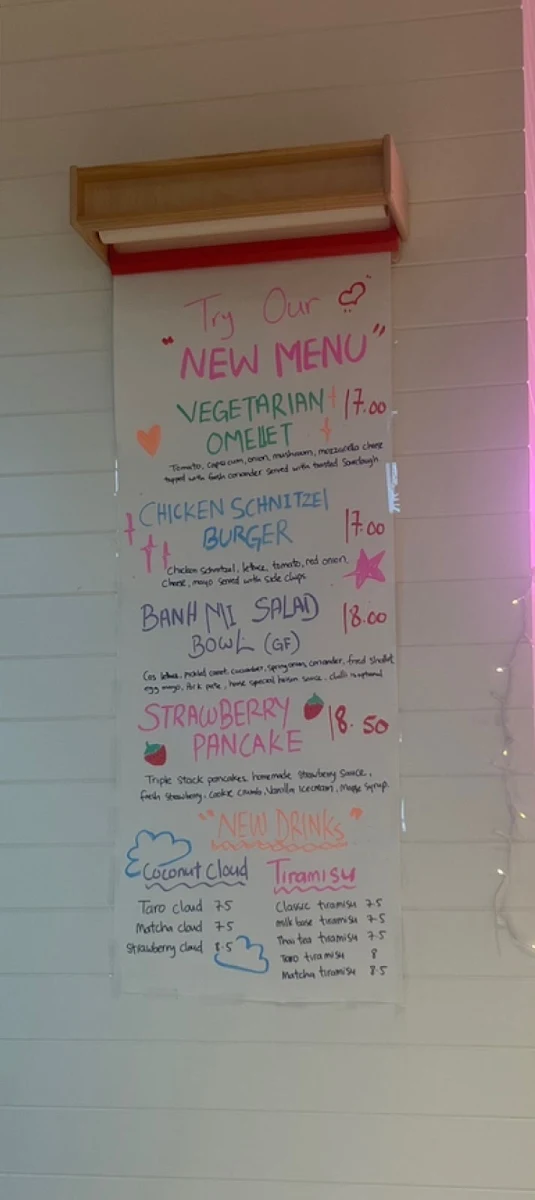 Try Our
"NEW MENU"
VEGETARIAN 17.00
OMELLET
Tomato, capsicum, onion, mushroom, mozzarella cheese
topped with fresh coriander served with toasted Sourdough
CHICKEN SCHNITZEL
BURGER 17.00
Chicken schnitzel, lettuce, tomato, red onion,
cheese, mayo served with side chips
BANH MI SALAD 18.00
BOWL (GF)
Cos lettuce, pickled carrot, cucumber, spring onion, coriander, fried shallot
egg mayo, Pork pate, house special hoisin sauce, chilli is optional
STRAWBERRY 18.50
PANCAKE
Triple Stack pancakes, homemade strawberry sauce,
fresh strawberry, cookie crumb, Vanilla Icecream, Maple Syrup.
"NEW DRINKS"
Coconut Cloud
Taro cloud 7.5
Matcha cloud 7.5
Strawberry cloud 8.5
Tiramisu
Classic tiramisu 7.5
milk base tiramisu 7.5
Thai tea tiramisu 7.5
Taro tiramisu 8
Matcha tiramisu 8.5